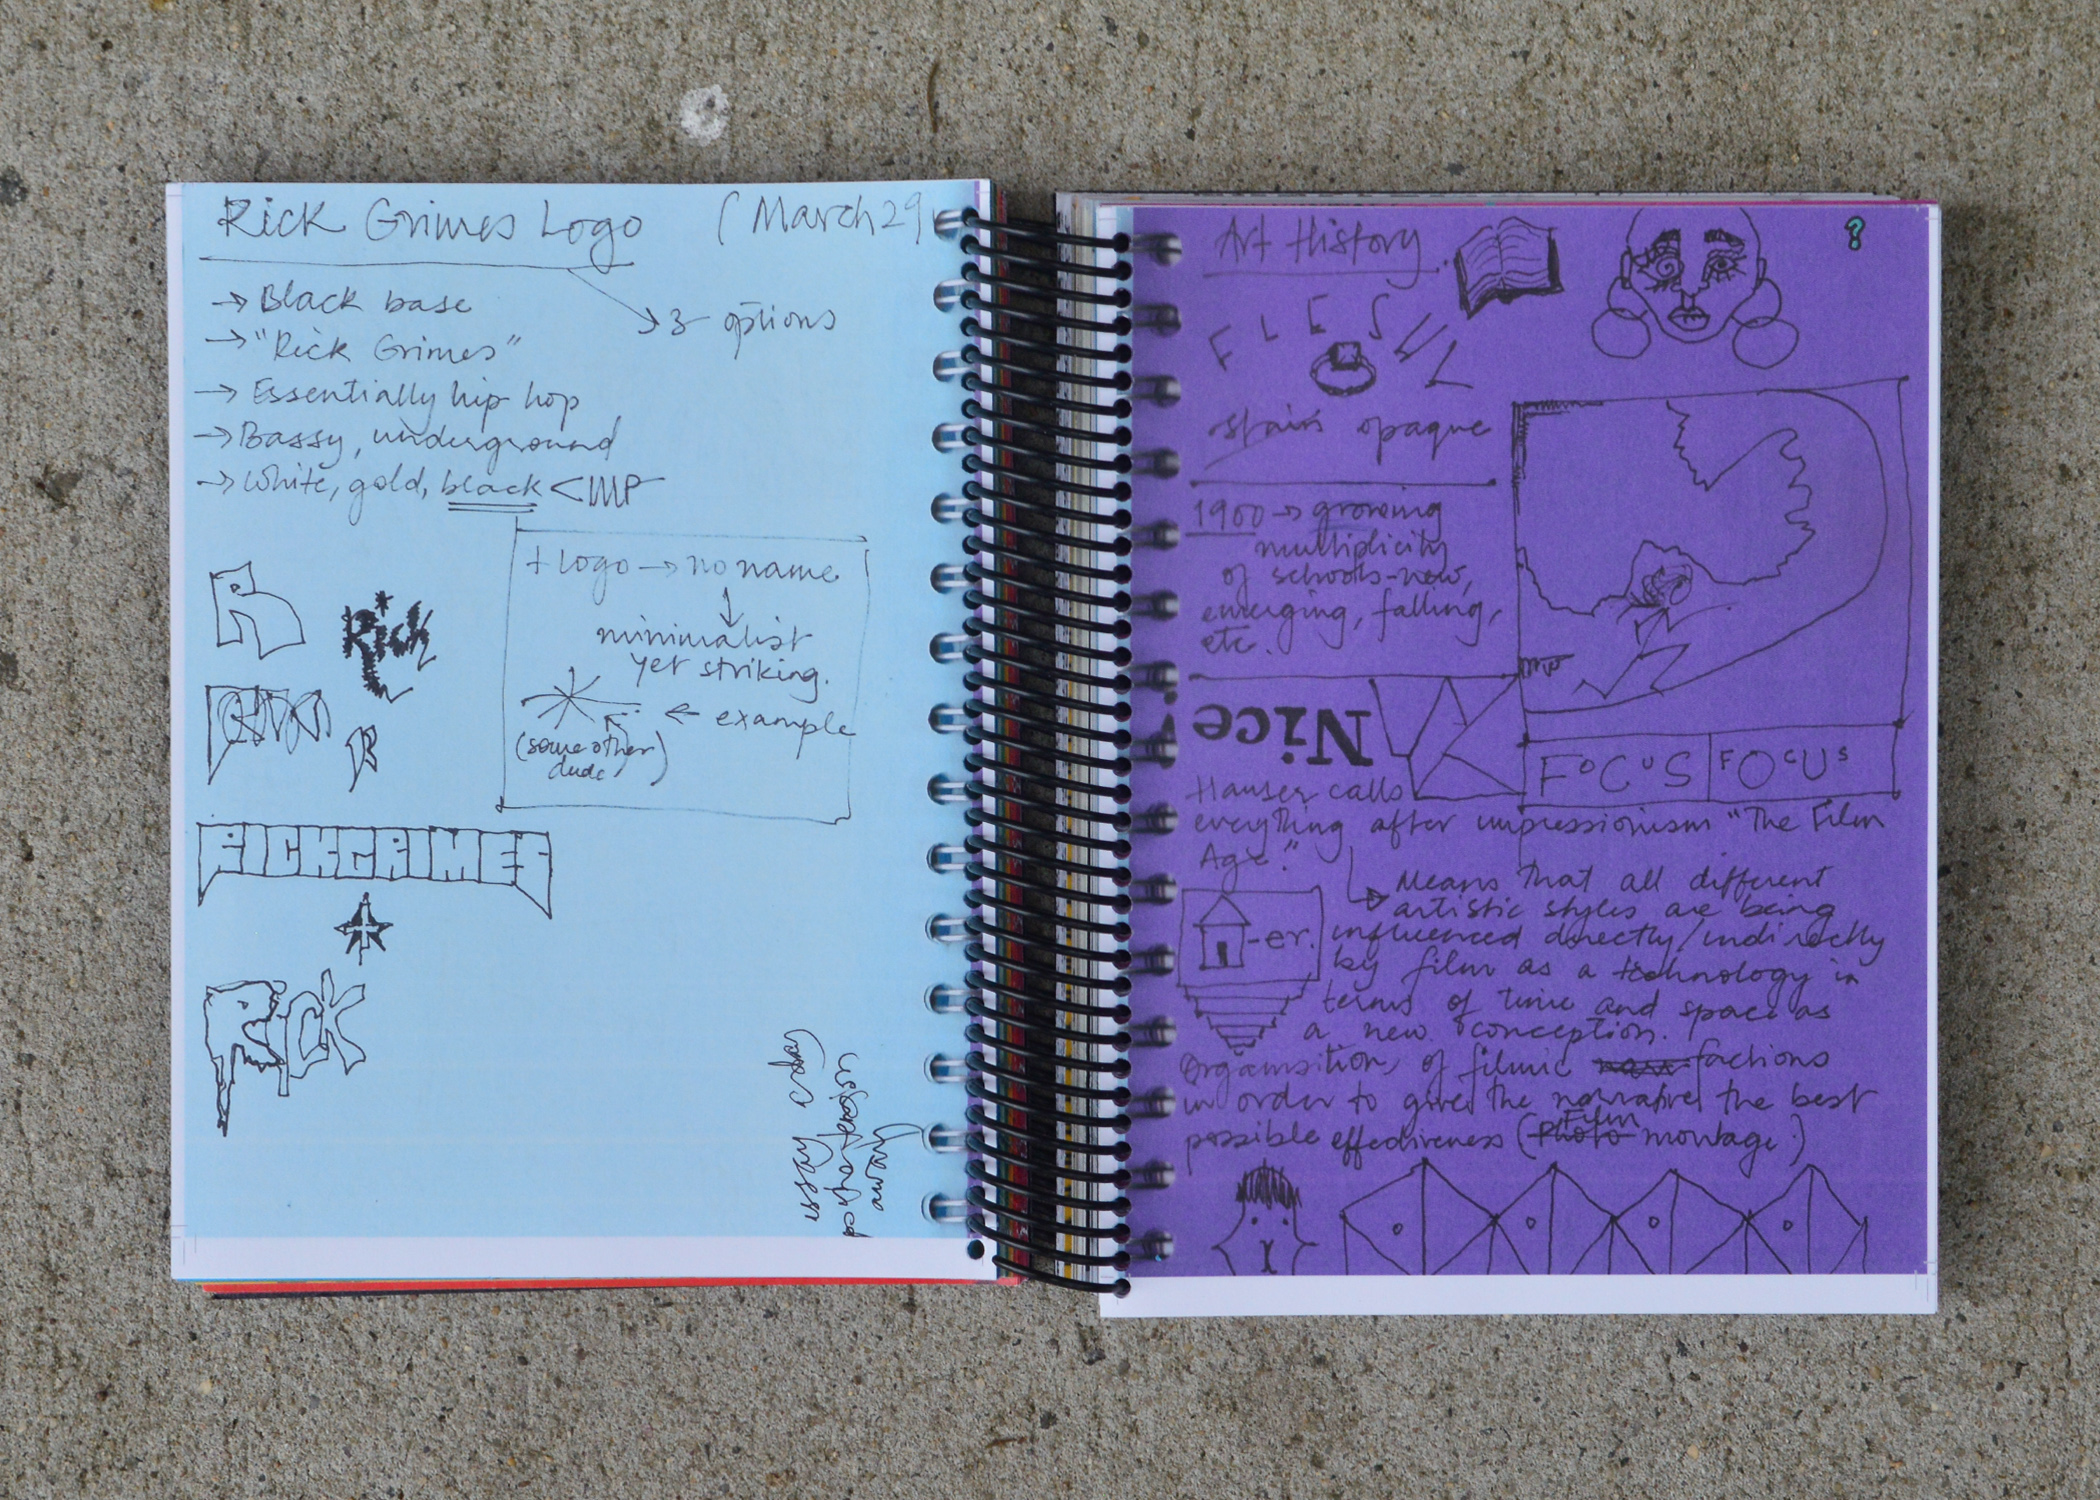 Rick Grimes Logo (March 29
→ Black base
→ 3 options
→ "Rick Grimes"
→ Essentially hip hop
→ Bassy, underground
→ White, gold, black < IMP
+ logo → no name
↓
minimalist
yet striking.
← example
(some other
dude)
R
Rick
R
RICKGRIMES
RICK
essay
away
Art History
?
F L E S H
stairs opaque
1900 → growing
multiplicity
of schools - new,
emerging, falling,
etc.
Nice
FOCUS FOCUS
Hauser calls
everything after impressionism "The Film
Age."
→ Means that all different
artistic styles are being
-er. influenced directly/indirectly
by film as a technology in
terms of time and space as
a new conception.
Organisition of filmic factions
in order to give the narrative the best
possible effectiveness (photo Film montage.)